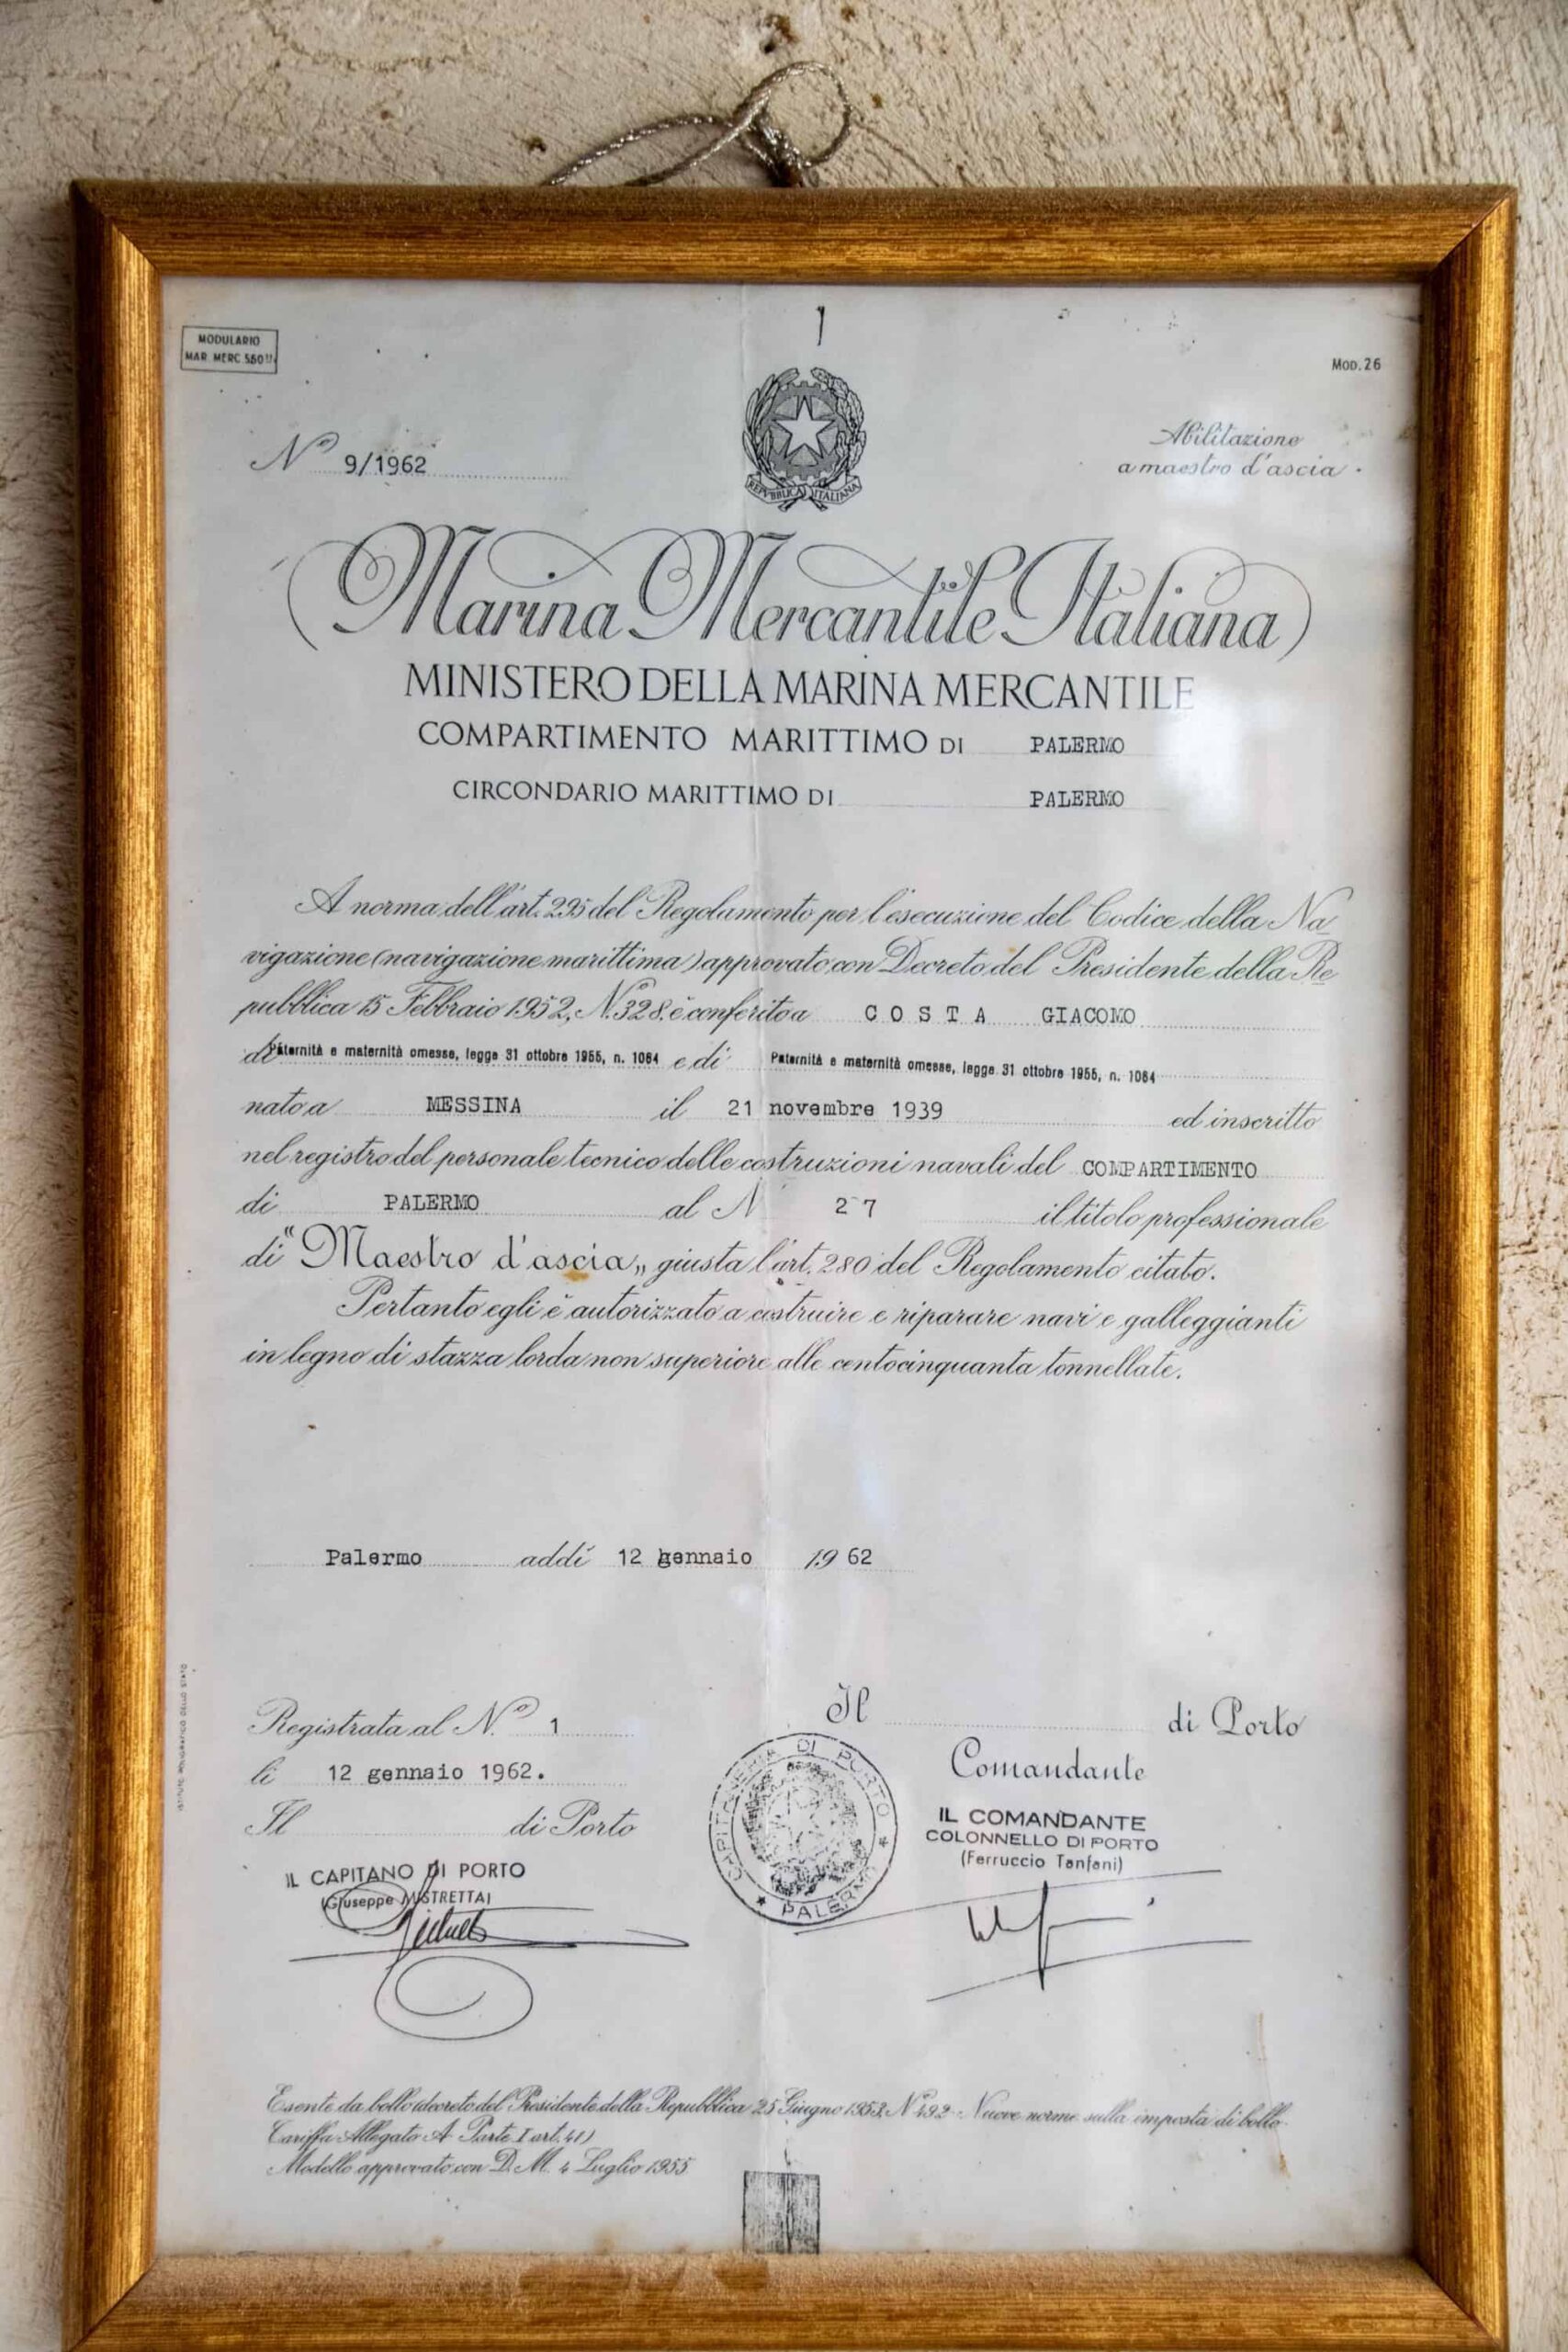 MODULARIO
MAR. MERC. 560
MOD. 26
Nº 9/1962
REPVBBLICA ITALIANA
Abilitazione
a maestro d'ascia.
Marina Mercantile Italiana
MINISTERO DELLA MARINA MERCANTILE
COMPARTIMENTO MARITTIMO DI PALERMO
CIRCONDARIO MARITTIMO DI PALERMO
A norma dell'art. 295 del Regolamento per l'esecuzione del Codice della Na
vigazione (navigazione marittima) approvato con Decreto del Presidente della Re
pubblica 15 Febbraio 1952, N. 328, è conferito a COSTA GIACOMO
di Paternità e maternità omesse, legge 31 ottobre 1955, n. 1064 e di Paternità e maternità omesse, legge 31 ottobre 1955, n. 1064
nato a MESSINA il 21 novembre 1939 ed inscritto
nel registro del personale tecnico delle costruzioni navali del COMPARTIMENTO
di PALERMO al N 27 il titolo professionale
di "Maestro d'ascia„ giusta l'art. 280 del Regolamento citato.
Pertanto egli è autorizzato a costruire e riparare navi e galleggianti
in legno di stazza lorda non superiore alle centocinquanta tonnellate.
Palermo addì 12 gennaio 1962
Registrata al N.º 1
lì 12 gennaio 1962.
Il di Porto
IL CAPITANO DI PORTO
(Giuseppe MISTRETTA)
CAPITANERIA DI PORTO
PALERMO
Il di Porto
Comandante
IL COMANDANTE
COLONNELLO DI PORTO
(Ferruccio Tanfani)
Esente da bollo (decreto del Presidente della Repubblica 25 Giugno 1953, Nº 492 - Nuove norme sulla imposta di bollo
Tariffa Allegato A Parte I art. 41)
Modello approvato con D. M. 4 Luglio 1955